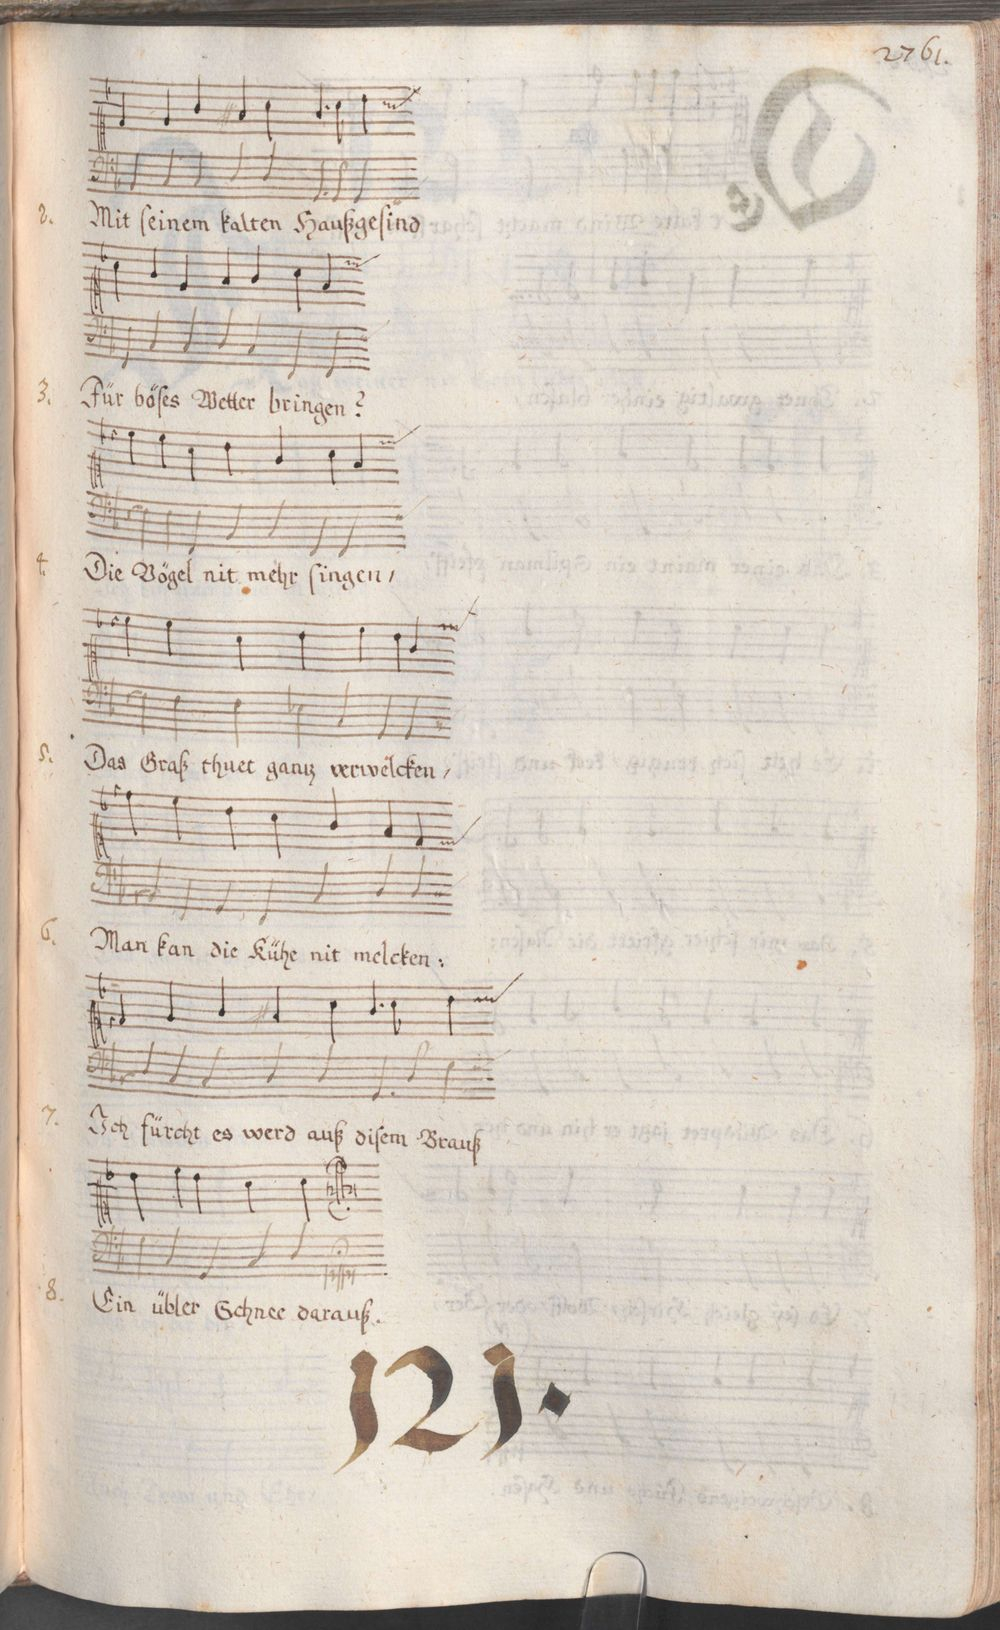 2761.
2. Mit seinem kalten Haußgesind
3. Für böses Wetter bringen?
4. Die Vögel nit mehr singen,
5. Das Graß thuet gantz verwelcken,
6. Man kan die Kühe nit melcken:
7. Ich fürcht es werd auß disem Brauß
8. Ein übler Schnee darauß.
121.